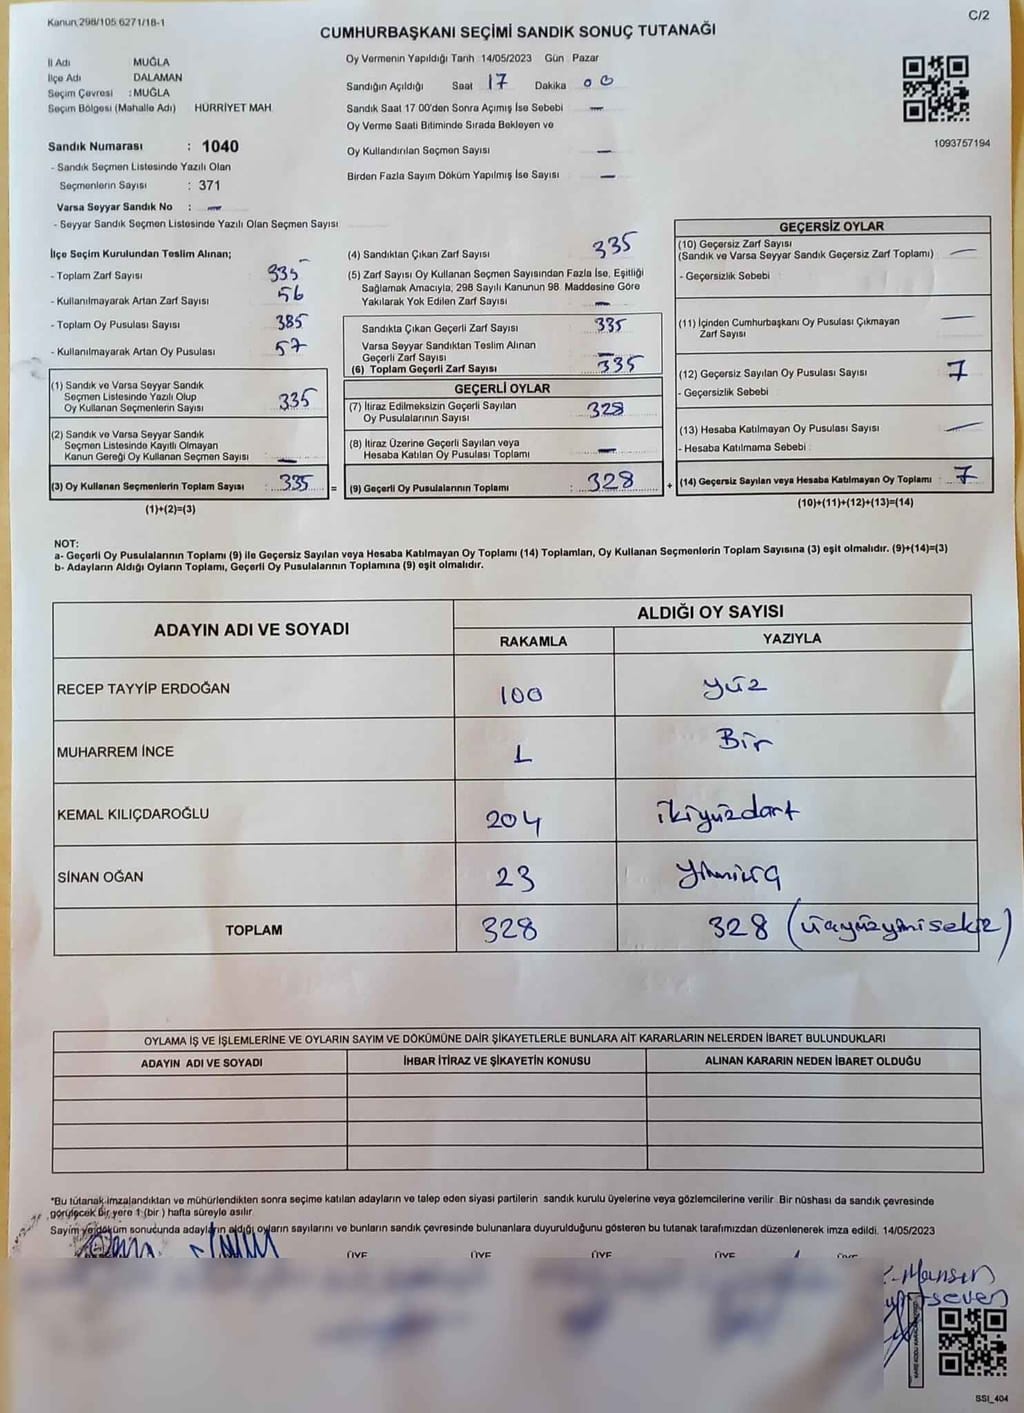 Kanun,298/105 6271/18-1
C/2
CUMHURBAŞKANI SEÇİMİ SANDIK SONUÇ TUTANAĞI
İl Adı MUĞLA
İlçe Adı DALAMAN
Seçim Çevresi : MUĞLA
Seçim Bölgesi (Mahalle Adı) HÜRRİYET MAH.
Sandık Numarası : 1040
- Sandık Seçmen Listesinde Yazılı Olan
Seçmenlerin Sayısı : 371
Varsa Seyyar Sandık No : —
- Seyyar Sandık Seçmen Listesinde Yazılı Olan Seçmen Sayısı
Oy Vermenin Yapıldığı Tarih 14/05/2023 Gün Pazar
Sandığın Açıldığı Saat 17 Dakika 00
Sandık Saat 17 00'den Sonra Açımış İse Sebebi —
Oy Verme Saati Bitiminde Sırada Bekleyen ve
Oy Kullandırılan Seçmen Sayısı —
Birden Fazla Sayım Döküm Yapılmış İse Sayısı —
1093757194
İlçe Seçim Kurulundan Teslim Alınan;
- Toplam Zarf Sayısı 335
- Kullanılmayarak Artan Zarf Sayısı 56
- Toplam Oy Pusulası Sayısı 385
- Kullanılmayarak Artan Oy Pusulası 57
(1) Sandık ve Varsa Seyyar Sandık
Seçmen Listesinde Yazılı Olup
Oy Kullanan Seçmenlerin Sayısı 335
(2) Sandık ve Varsa Seyyar Sandık
Seçmen Listesinde Kayıtlı Olmayan
Kanun Gereği Oy Kullanan Seçmen Sayısı —
(3) Oy Kullanan Seçmenlerin Toplam Sayısı : 335 =
(1)+(2)=(3)
(4) Sandıktan Çıkan Zarf Sayısı 335
(5) Zarf Sayısı Oy Kullanan Seçmen Sayısından Fazla İse, Eşitliği
Sağlamak Amacıyla, 298 Sayılı Kanunun 98. Maddesine Göre
Yakılarak Yok Edilen Zarf Sayısı —
Sandıkta Çıkan Geçerli Zarf Sayısı 335
Varsa Seyyar Sandıktan Teslim Alınan
Geçerli Zarf Sayısı —
(6) Toplam Geçerli Zarf Sayısı 335
GEÇERLİ OYLAR
(7) İtiraz Edilmeksizin Geçerli Sayılan
Oy Pusulalarının Sayısı 328
(8) İtiraz Üzerine Geçerli Sayılan veya
Hesaba Katılan Oy Pusulası Toplamı —
(9) Geçerli Oy Pusulalarının Toplamı : 328 +
GEÇERSİZ OYLAR
(10) Geçersiz Zarf Sayısı
(Sandık ve Varsa Seyyar Sandık Geçersiz Zarf Toplamı) —
- Geçersizlik Sebebi :
(11) İçinden Cumhurbaşkanı Oy Pusulası Çıkmayan —
Zarf Sayısı
(12) Geçersiz Sayılan Oy Pusulası Sayısı 7
- Geçersizlik Sebebi
(13) Hesaba Katılmayan Oy Pusulası Sayısı —
- Hesaba Katılmama Sebebi
(14) Geçersiz Sayılan veya Hesaba Katılmayan Oy Toplamı : 7
(10)+(11)+(12)+(13)=(14)
NOT:
a- Geçerli Oy Pusulalarının Toplamı (9) ile Geçersiz Sayılan veya Hesaba Katılmayan Oy Toplamı (14) Toplamları, Oy Kullanan Seçmenlerin Toplam Sayısına (3) eşit olmalıdır. (9)+(14)=(3)
b- Adayların Aldığı Oyların Toplamı, Geçerli Oy Pusulalarının Toplamına (9) eşit olmalıdır.
ADAYIN ADI VE SOYADI ALDIĞI OY SAYISI
RAKAMLA YAZIYLA
RECEP TAYYİP ERDOĞAN 100 yüz
MUHARREM İNCE 1 Bir
KEMAL KILIÇDAROĞLU 204 ikiyüzdört
SİNAN OĞAN 23
TOPLAM 328 328
OYLAMA İŞ VE İŞLEMLERİNE VE OYLARIN SAYIM VE DÖKÜMÜNE DAİR ŞİKAYETLERLE BUNLARA AİT KARARLARIN NELERDEN İBARET BULUNDUKLARI
ADAYIN ADI VE SOYADI İHBAR İTİRAZ VE ŞİKAYETİN KONUSU ALINAN KARARIN NEDEN İBARET OLDUĞU
*Bu tutanak imzalandıktan ve mühürlendikten sonra seçime katılan adayların ve talep eden siyasi partilerin sandık kurulu üyelerine veya gözlemcilerine verilir. Bir nüshası da sandık çevresinde
görülecek bir yere 1 (bir ) hafta süreyle asılır.
Sayım ve döküm sonucunda adayların aldığı oyların sayılarını ve bunların sandık çevresinde bulunanlara duyurulduğunu gösteren bu tutanak tarafımızdan düzenlenerek imza edildi. 14/05/2023
ÜYE ÜYE ÜYE ÜYE ÜYE
SSI_404